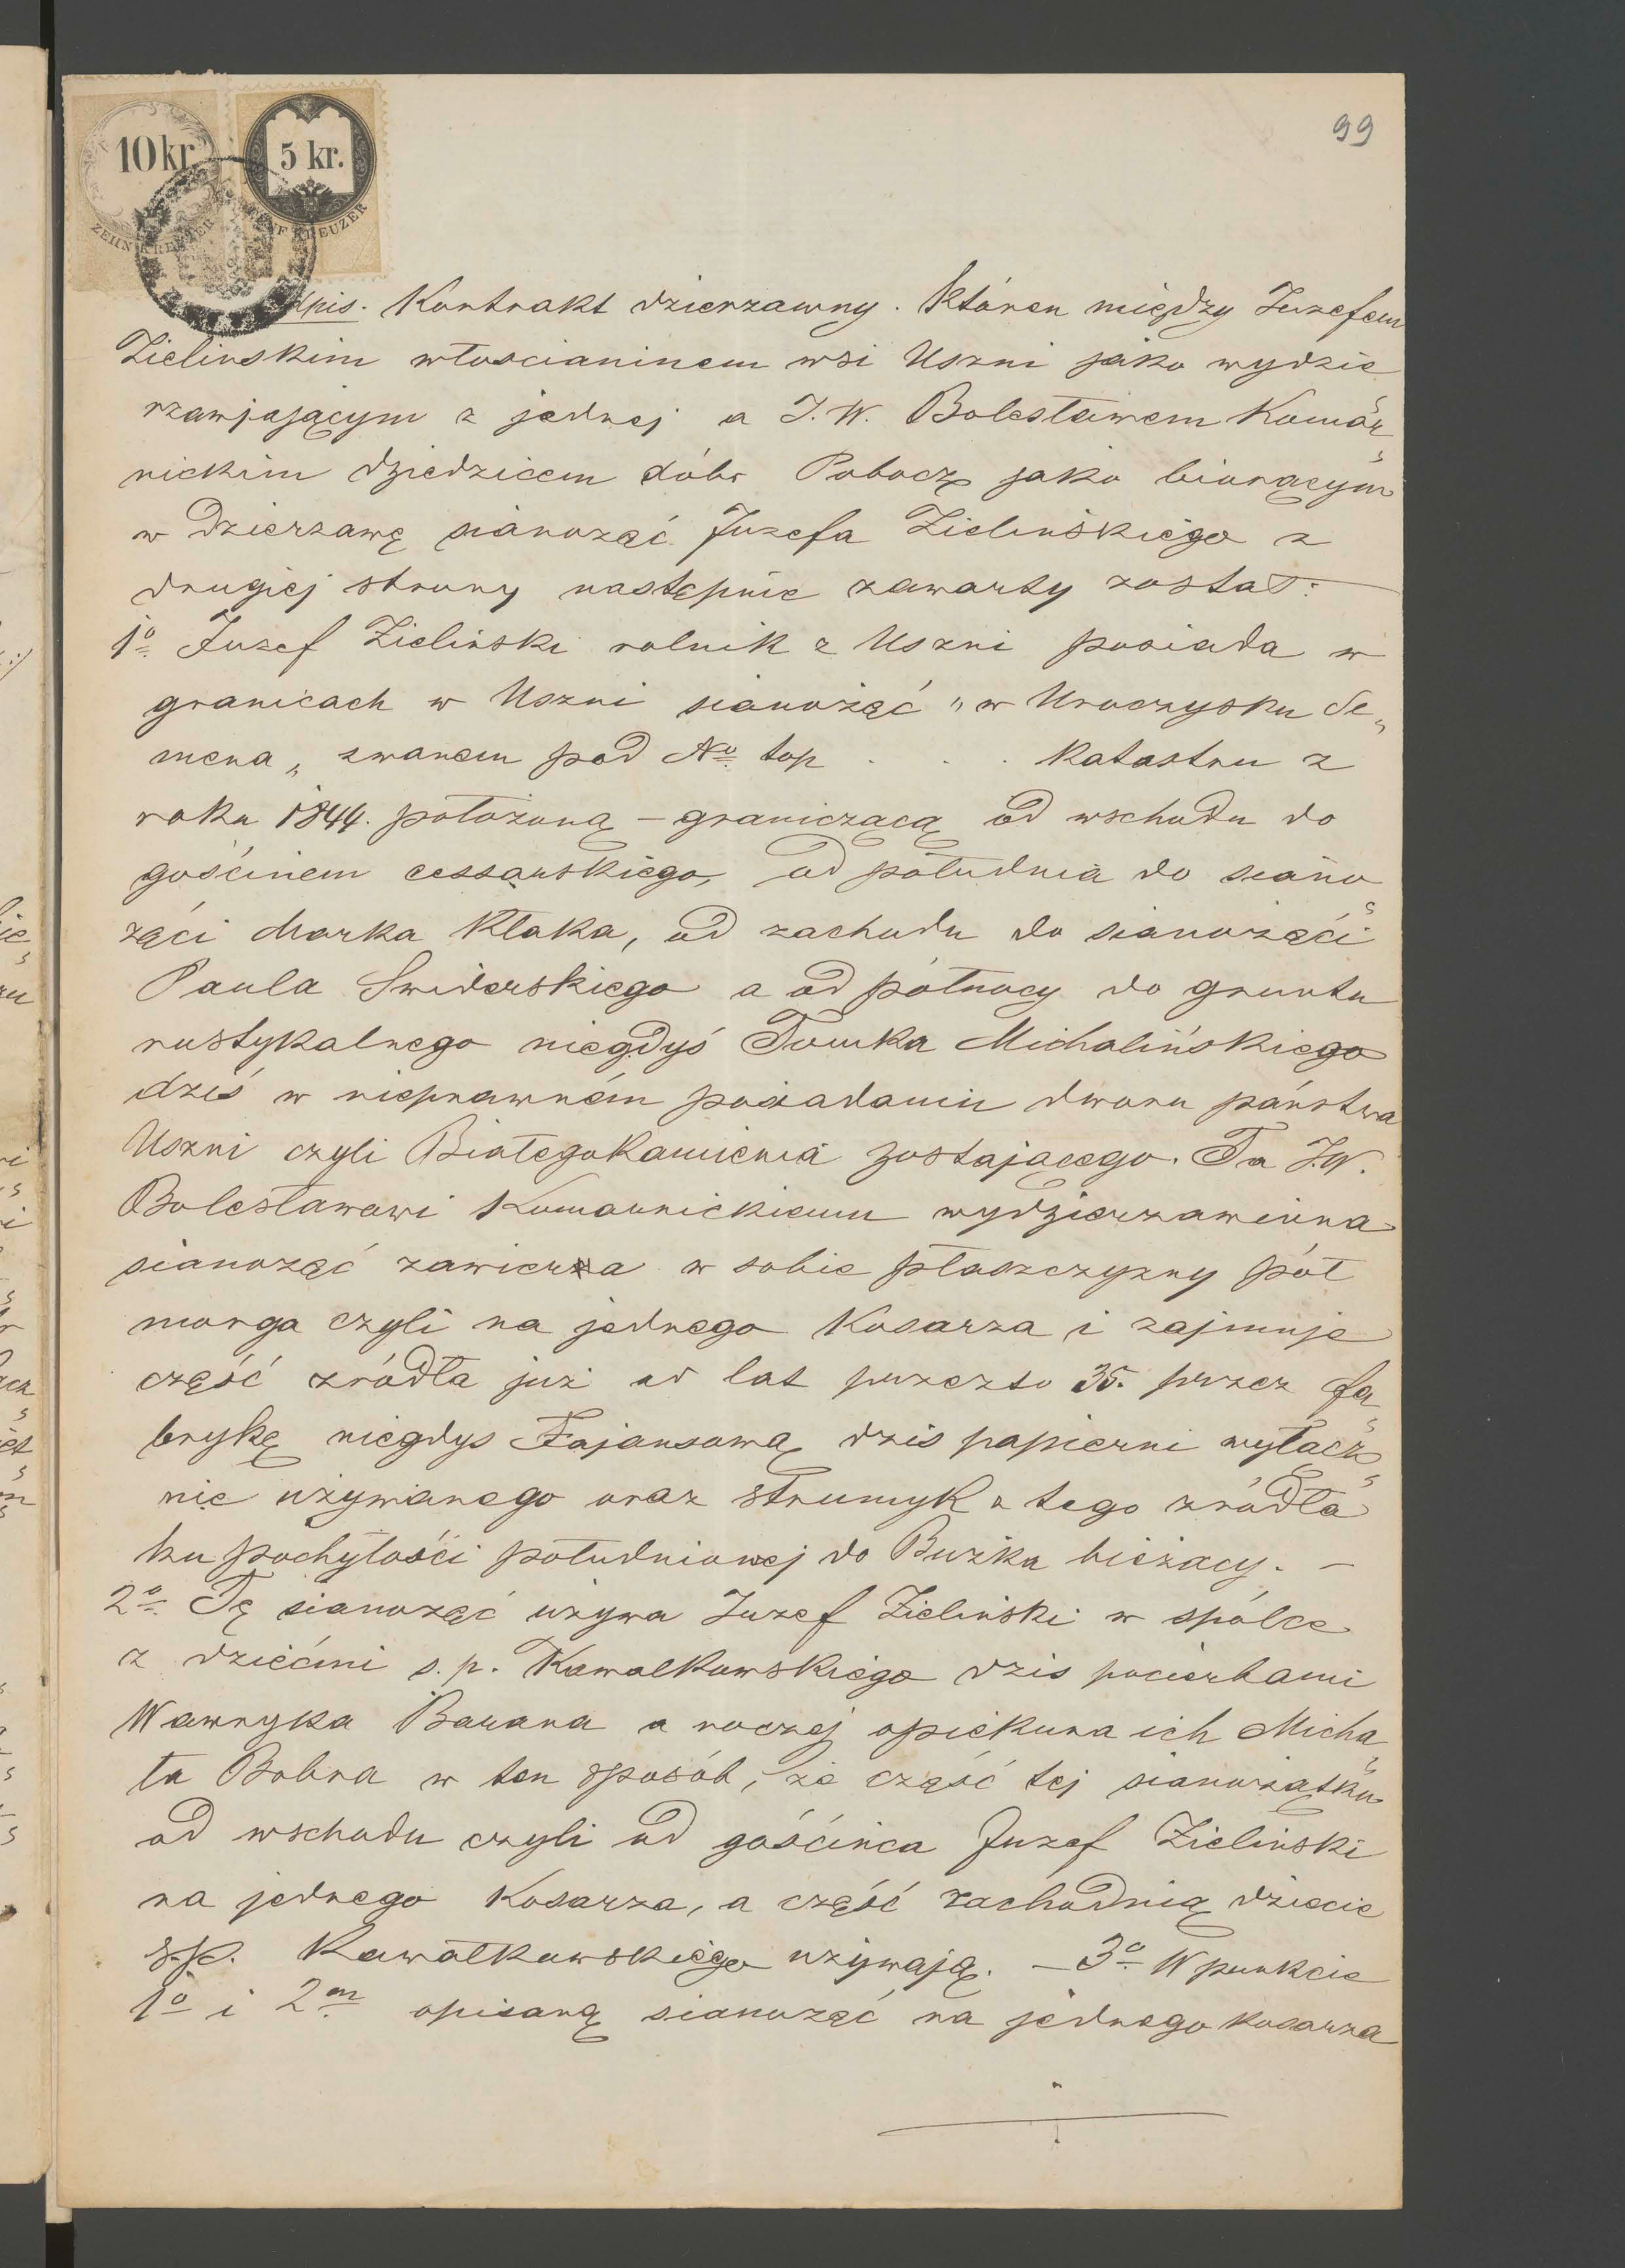 99
10 kr
ZEHN KREUZER
5 kr.
FÜNF KREUZER
Odpis. Kontrakt dzierzawny. Któren między Juzefem
Zielinskim włoscianinem wsi Uszni jako wydzie
rzawjającym z jednej a J. W. Bolesławem Komar„
nickim dziedzicem dóbr Pobocz jako biorącym
w dzierzawę sianoząć Juzefa Zielińskiego z
drugiej strony następnie zawarty został: —
1o Juzef Zieliński rolnik z Uszni posiada w
granicach w Uszni sianożąć „w Uroczysku Se„
mena„ zwanem pod No top . . . Katastru z
roku 1844. położoną – graniczącą od wschodu do
gościniem cessarskiego, od południa do siano„
ząci Marka Kłaka, od zachodu do sianożąci
Paula Swiderskiego a od północy do gruntu
rustykalnego niegdyś Tomka Michalińskiego
dziś w nieprawném posiadaniu dworu państwa
Uszni czyli Białegokamienia zostającego. Ta J.W.
Bolesławowi Komarnickiemu wydzierzawiona
sianoząć zawiera w sobie płaszczyzny pół
morga czyli na jednego Kosarza i zajmuje
część zródła już od lat przeszto 35. przez fa„
brykę niegdys Fajansową dzis papierni wyłącz„
nie używanego oraz strumyk z tego zródła
ku pochyłości południowej do Bużka bieżacy. –
2o Tę sianoząć używa Juzef Zieliński w spólce
z dziećmi s. p. Kawalkowskiego dzis pocierbami
Wawryka Barana a raczej opiekuna ich Micha„
ła Bobra w ten sposób, że część tej sianożątku
od wschodu czyli od gościńca Juzef Zieliński
na jednego Kosarza, a część zachodnią dziecie
s.p. Kawałkowskiego używają. – 3o W punkcie
1o i 2m opisaną sianoząć na jednego kosarza